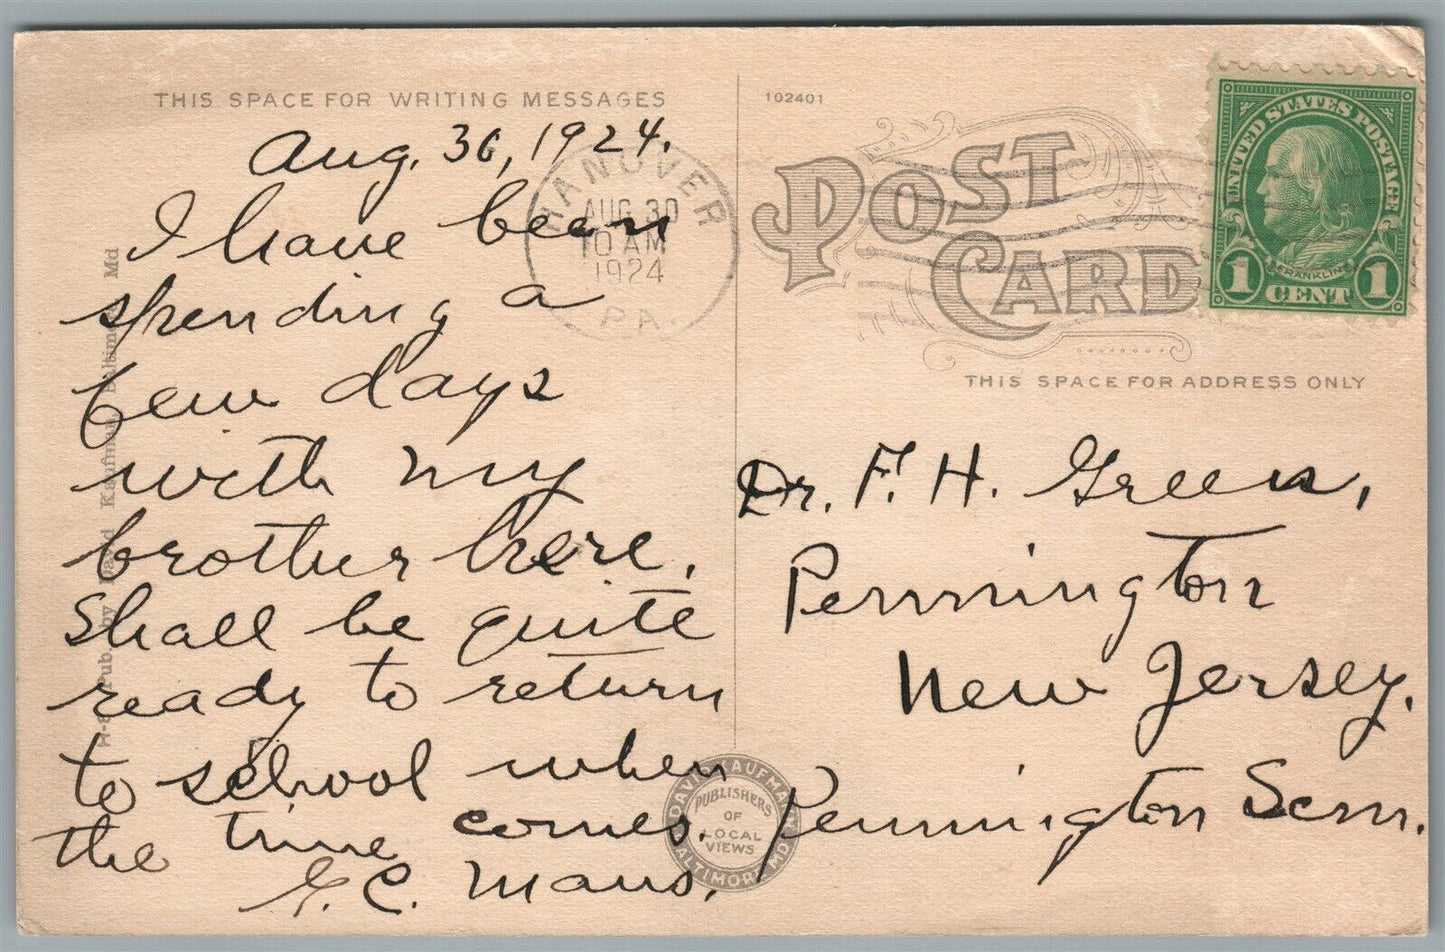 THIS SPACE FOR WRITING MESSAGES
Aug. 30, 1924.
I have been
spending a
few days
with my
brother here.
Shall be quite
ready to return
to school when
the time comes.
HANOVER
AUG 30
10 AM
1924
PA.
Pub. by David Kaufman, Baltimore Md
102401
POST
CARD
THIS SPACE FOR ADDRESS ONLY
UNITED STATES POSTAGE
FRANKLIN
1 CENT 1
Dr. F. H. Green,
Pennington
New Jersey.
Pennington Sem.
DAVID KAUFMANN
PUBLISHERS
OF
LOCAL
VIEWS
BALTIMORE MD